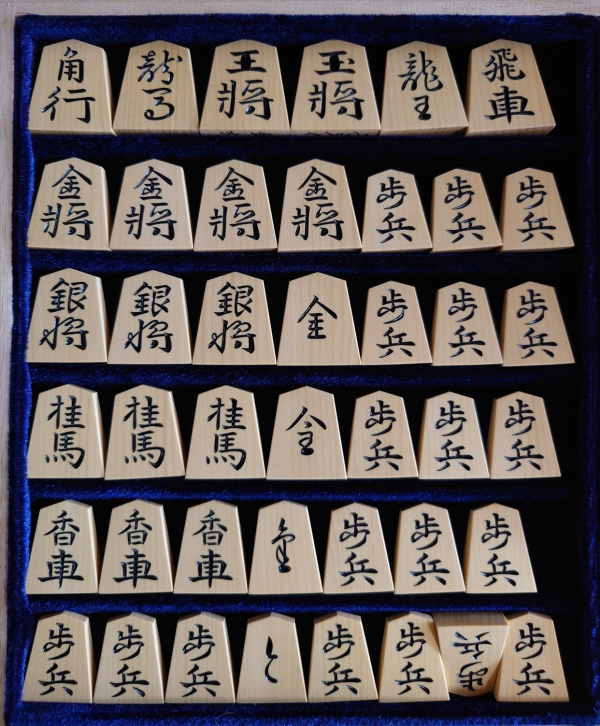 角行 龍馬 王將 玉將 龍王 飛車
金將 金將 金將 金將 歩兵 歩兵 歩兵
銀将 銀将 銀将 全 歩兵 歩兵 歩兵
桂馬 桂馬 桂馬 全 歩兵 歩兵 歩兵
香車 香車 香車 歩兵 歩兵 歩兵
歩兵 歩兵 歩兵 と 歩兵 歩兵 歩兵 歩兵